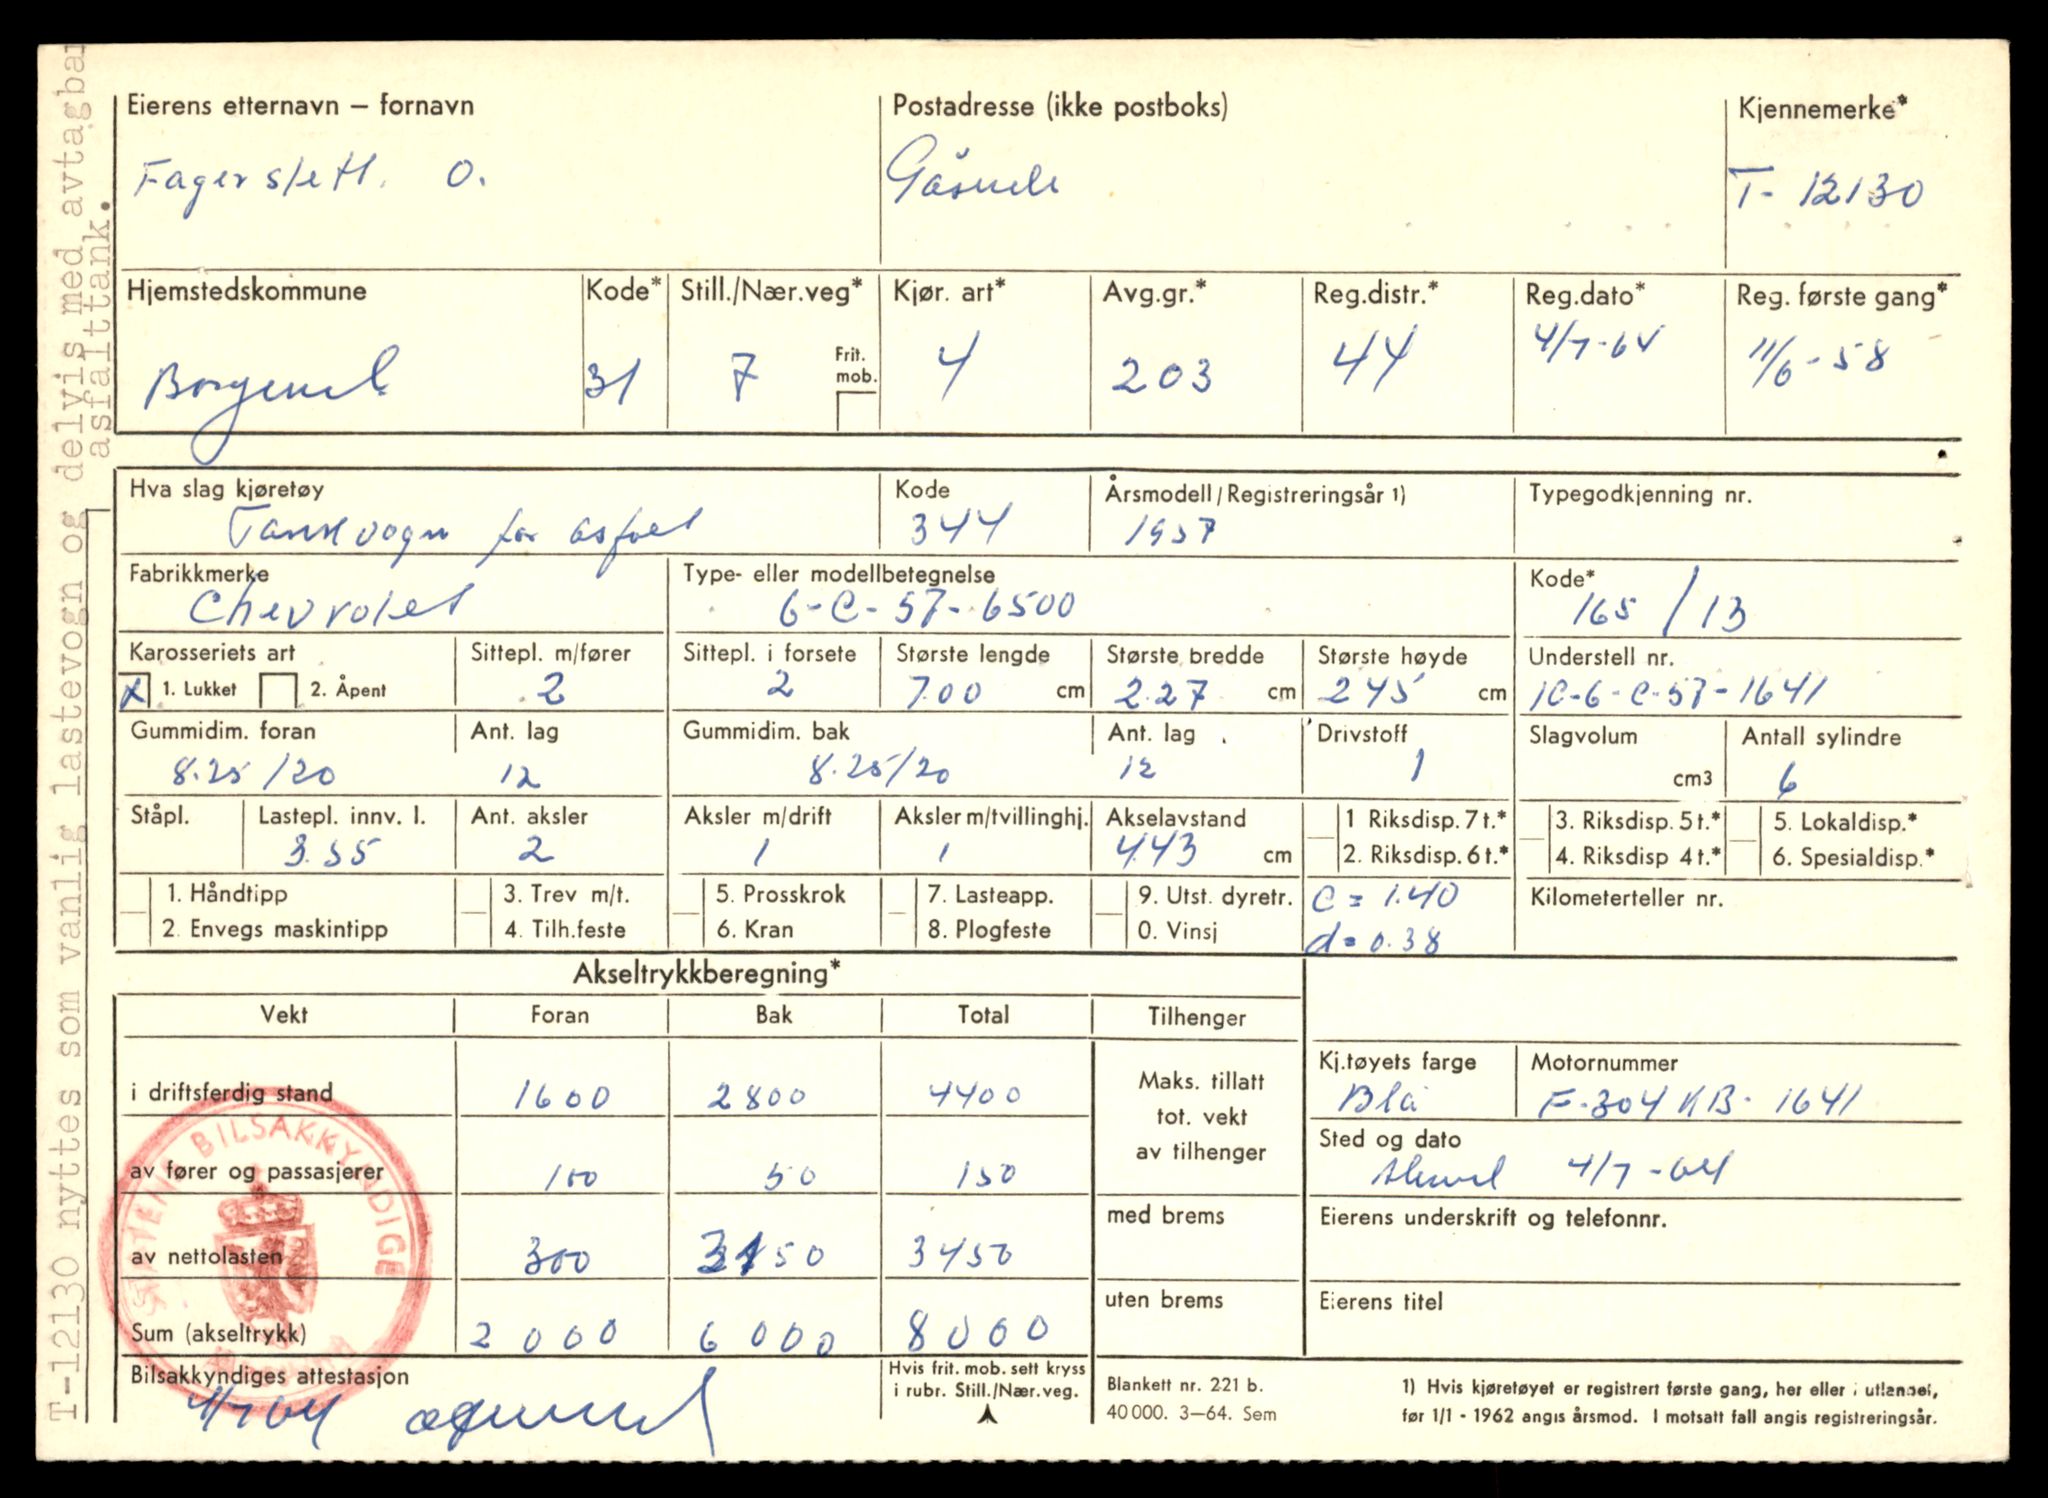 T-12130 nyttes som vanlig lastevogn og delvis med avtagbar
asfalttank.
Eierens etternavn – fornavn
Fagerslett. O.
Postadresse (ikke postboks)
Kjennemerke*
T- 12130
Hjemstedskommune
Borgund
Kode*
31
Still./Nær.veg*
7
Frit.
mob.
Kjør. art*
4
Avg.gr.*
203
Reg.distr.*
44
Reg.dato*
4/7-64
Reg. første gang*
11/6-58
Hva slag kjøretøy
Tankvogn for asfalt
Kode
344
Årsmodell/Registreringsår 1)
1957
Typegodkjenning nr.
Fabrikkmerke
Chevrolet
Type- eller modellbetegnelse
6-C-57-6500
Kode*
165 / 13
Karosseriets art
x 1. Lukket 2. Åpent
Sittepl. m/fører
2
Sittepl. i forsete
2
Største lengde
7.00 cm
Største bredde
2.27 cm
Største høyde
245 cm
Understell nr.
1C-6-C-57-1641
Gummidim. foran
8.25/20
Ant. lag
12
Gummidim. bak
8.25/20
Ant. lag
12
Drivstoff
1
Slagvolum
cm3
Antall sylindre
6
Ståpl.
Lastepl. innv. l.
3.55
Ant. aksler
2
Aksler m/drift
1
Aksler m/tvillinghj.
1
Akselavstand
4.43 cm
1 Riksdisp. 7 t.*
2. Riksdisp. 6 t.*
3. Riksdisp. 5 t.*
4. Riksdisp 4 t.*
5. Lokaldisp.*
6. Spesialdisp.*
1. Håndtipp
2. Envegs maskintipp
3. Trev m/t.
4. Tilh.feste
5. Prosskrok
6. Kran
7. Lasteapp.
8. Plogfeste
9. Utst. dyretr.
0. Vinsj
C = 1.40
d = 0.38
Kilometerteller nr.
Akseltrykkberegning*
Vekt Foran Bak Total Tilhenger
i driftsferdig stand 1600 2800 4400
av fører og passasjerer 100 50 150
av nettolasten 300 3150 3450
Sum (akseltrykk) 2000 6000 8000
Maks. tillatt
tot. vekt
av tilhenger
med brems
uten brems
Kj.tøyets farge
Blå
Motornummer
F-304 KB- 1641
Sted og dato
4/7-64
Eierens underskrift og telefonnr.
Eierens titel
STATENS BILSAKKYNDIGE
Bilsakkyndiges attestasjon
4/7 64
Hvis frit. mob. sett kryss
i rubr. Still./Nær.veg.
Blankett nr. 221 b.
40 000. 3–64. Sem
1) Hvis kjøretøyet er registrert første gang, her eller i utlandet,
før 1/1 - 1962 angis årsmod. I motsatt fall angis registreringsår.